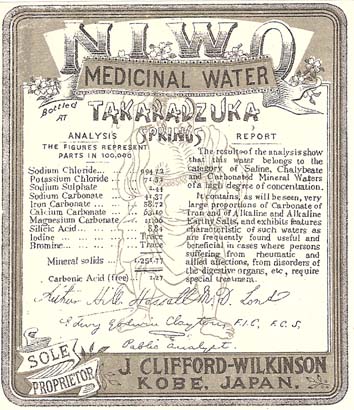 NIWO
MEDICINAL WATER
Bottled
AT
TAKARADZUKA
SPRINGS
ANALYSIS
THE FIGURES REPRESENT
PARTS IN 100,000
Sodium Chloride...
Potassium Chloride...
Sodium Sulphate
Sodium Carbonate 41.37
Iron Carbonate...
Calcium Carbonate
Magnesium Carbonate
Silicic Acid 8.84
Iodine Trace
Bromine... Trace
Mineral solids
Carbonic Acid (free) 1.27
REPORT
The results of the analysis show
that this water belongs to the
category of Saline, Chalybeate
and Carbonated Mineral Waters
of a high degree of concentation.
It contains, as will be seen, very
large proportions of Carbonate of
Iran and of Alkaline and Alkaline
Earthy Salts, and exhibits features
characteristic of such waters as
are frequently found useful and
beneficial in cases where persons
suffering from rheumatic and
allied affections, from disorders of
the digestive organs, etc, require
special treatment.
Arthur Hill Hassall M.D. Lond
Clayton, F.I.C, F.C.S,
Public Analyst.
SOLE
PROPRIETOR
J. CLIFFORD-WILKINSON
KOBE, JAPAN.